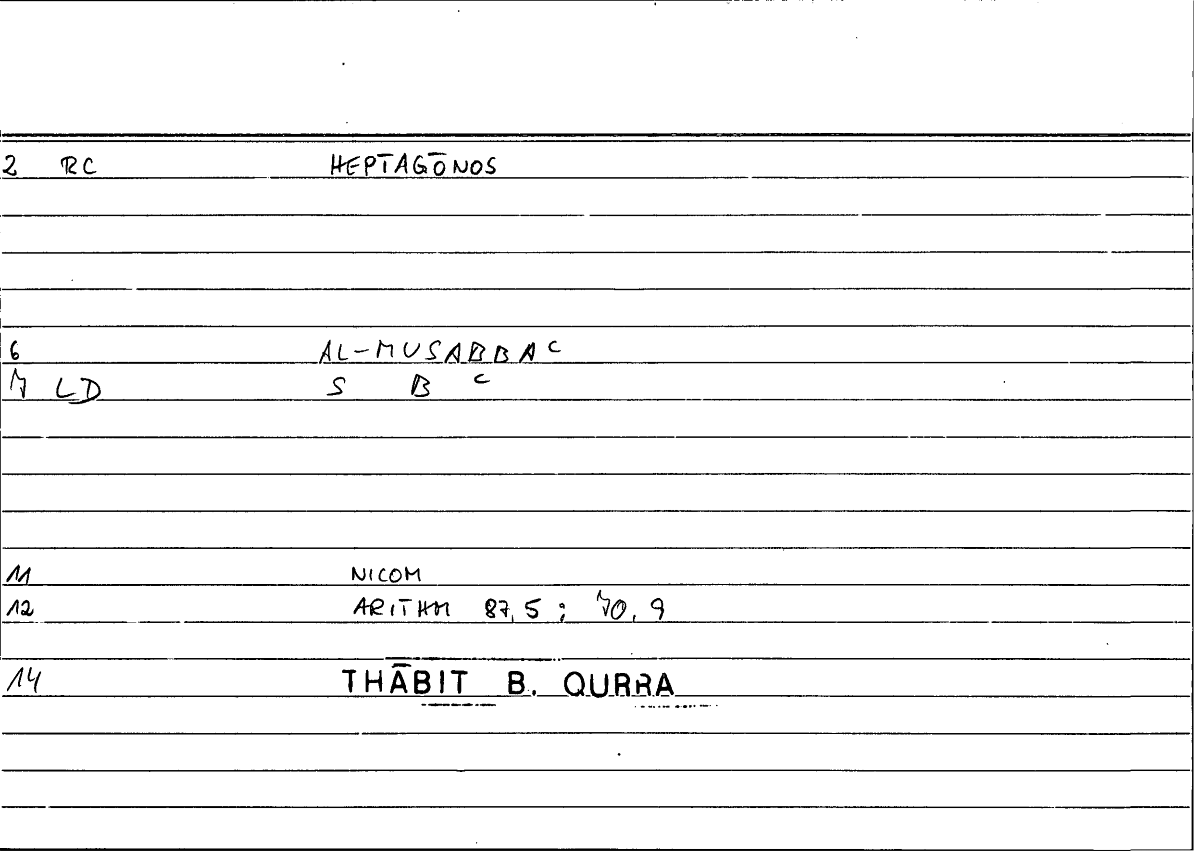 2 RC HEPTAGŌNOS
6 AL-MUSABBAC
7 LD S B C
11 NICOM
12 ARITHM 87,5 ; 70,9
14 THĀBIT B. QURRA